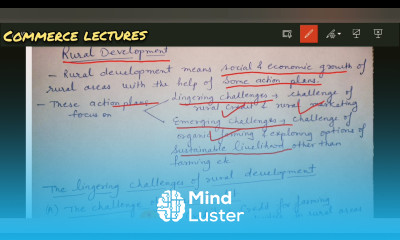 COMMERCE LECTURES
Rural Development
- Rural development means social & economic growth of
rural areas with the help of some action plans.
- These action plans
focus on
Lingering challenges → challenge of
rural credit & rural marketing
Emerging challenges → challenge of
organic farming & exploring options of
sustainable livelihood other than
farming etc
The lingering challenges of rural development
(A) The challenge of
credit for farming
in rural areas
Mind
Luster